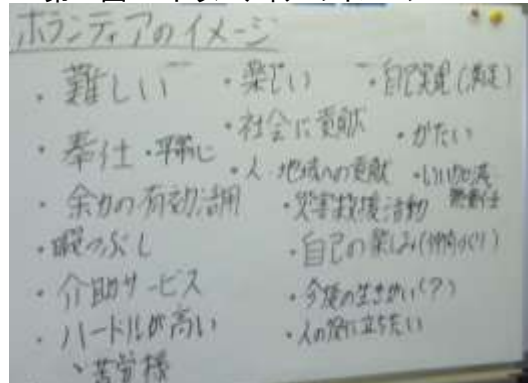 ボランティアのイメージ
・難しい
・奉仕・平等に
・余力の有効活用
・暇つぶし
・介助サービス
・ハードルが高い
、苦労様
・楽しい
・社会に貢献
・人・地域への貢献
・災害救援活動
・自己の楽しみ(仲間づくり)
・今後の生きがい(?)
・人の役に立ちたい
・自己実現(満足)
・かたい